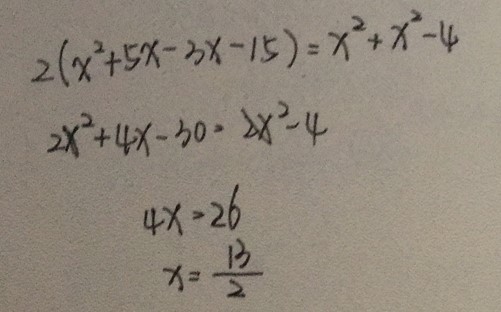 2(x²+5x-3x-15)=x²+x²-4
2x²+4x-30=2x²-4
4x=26
x=13/2